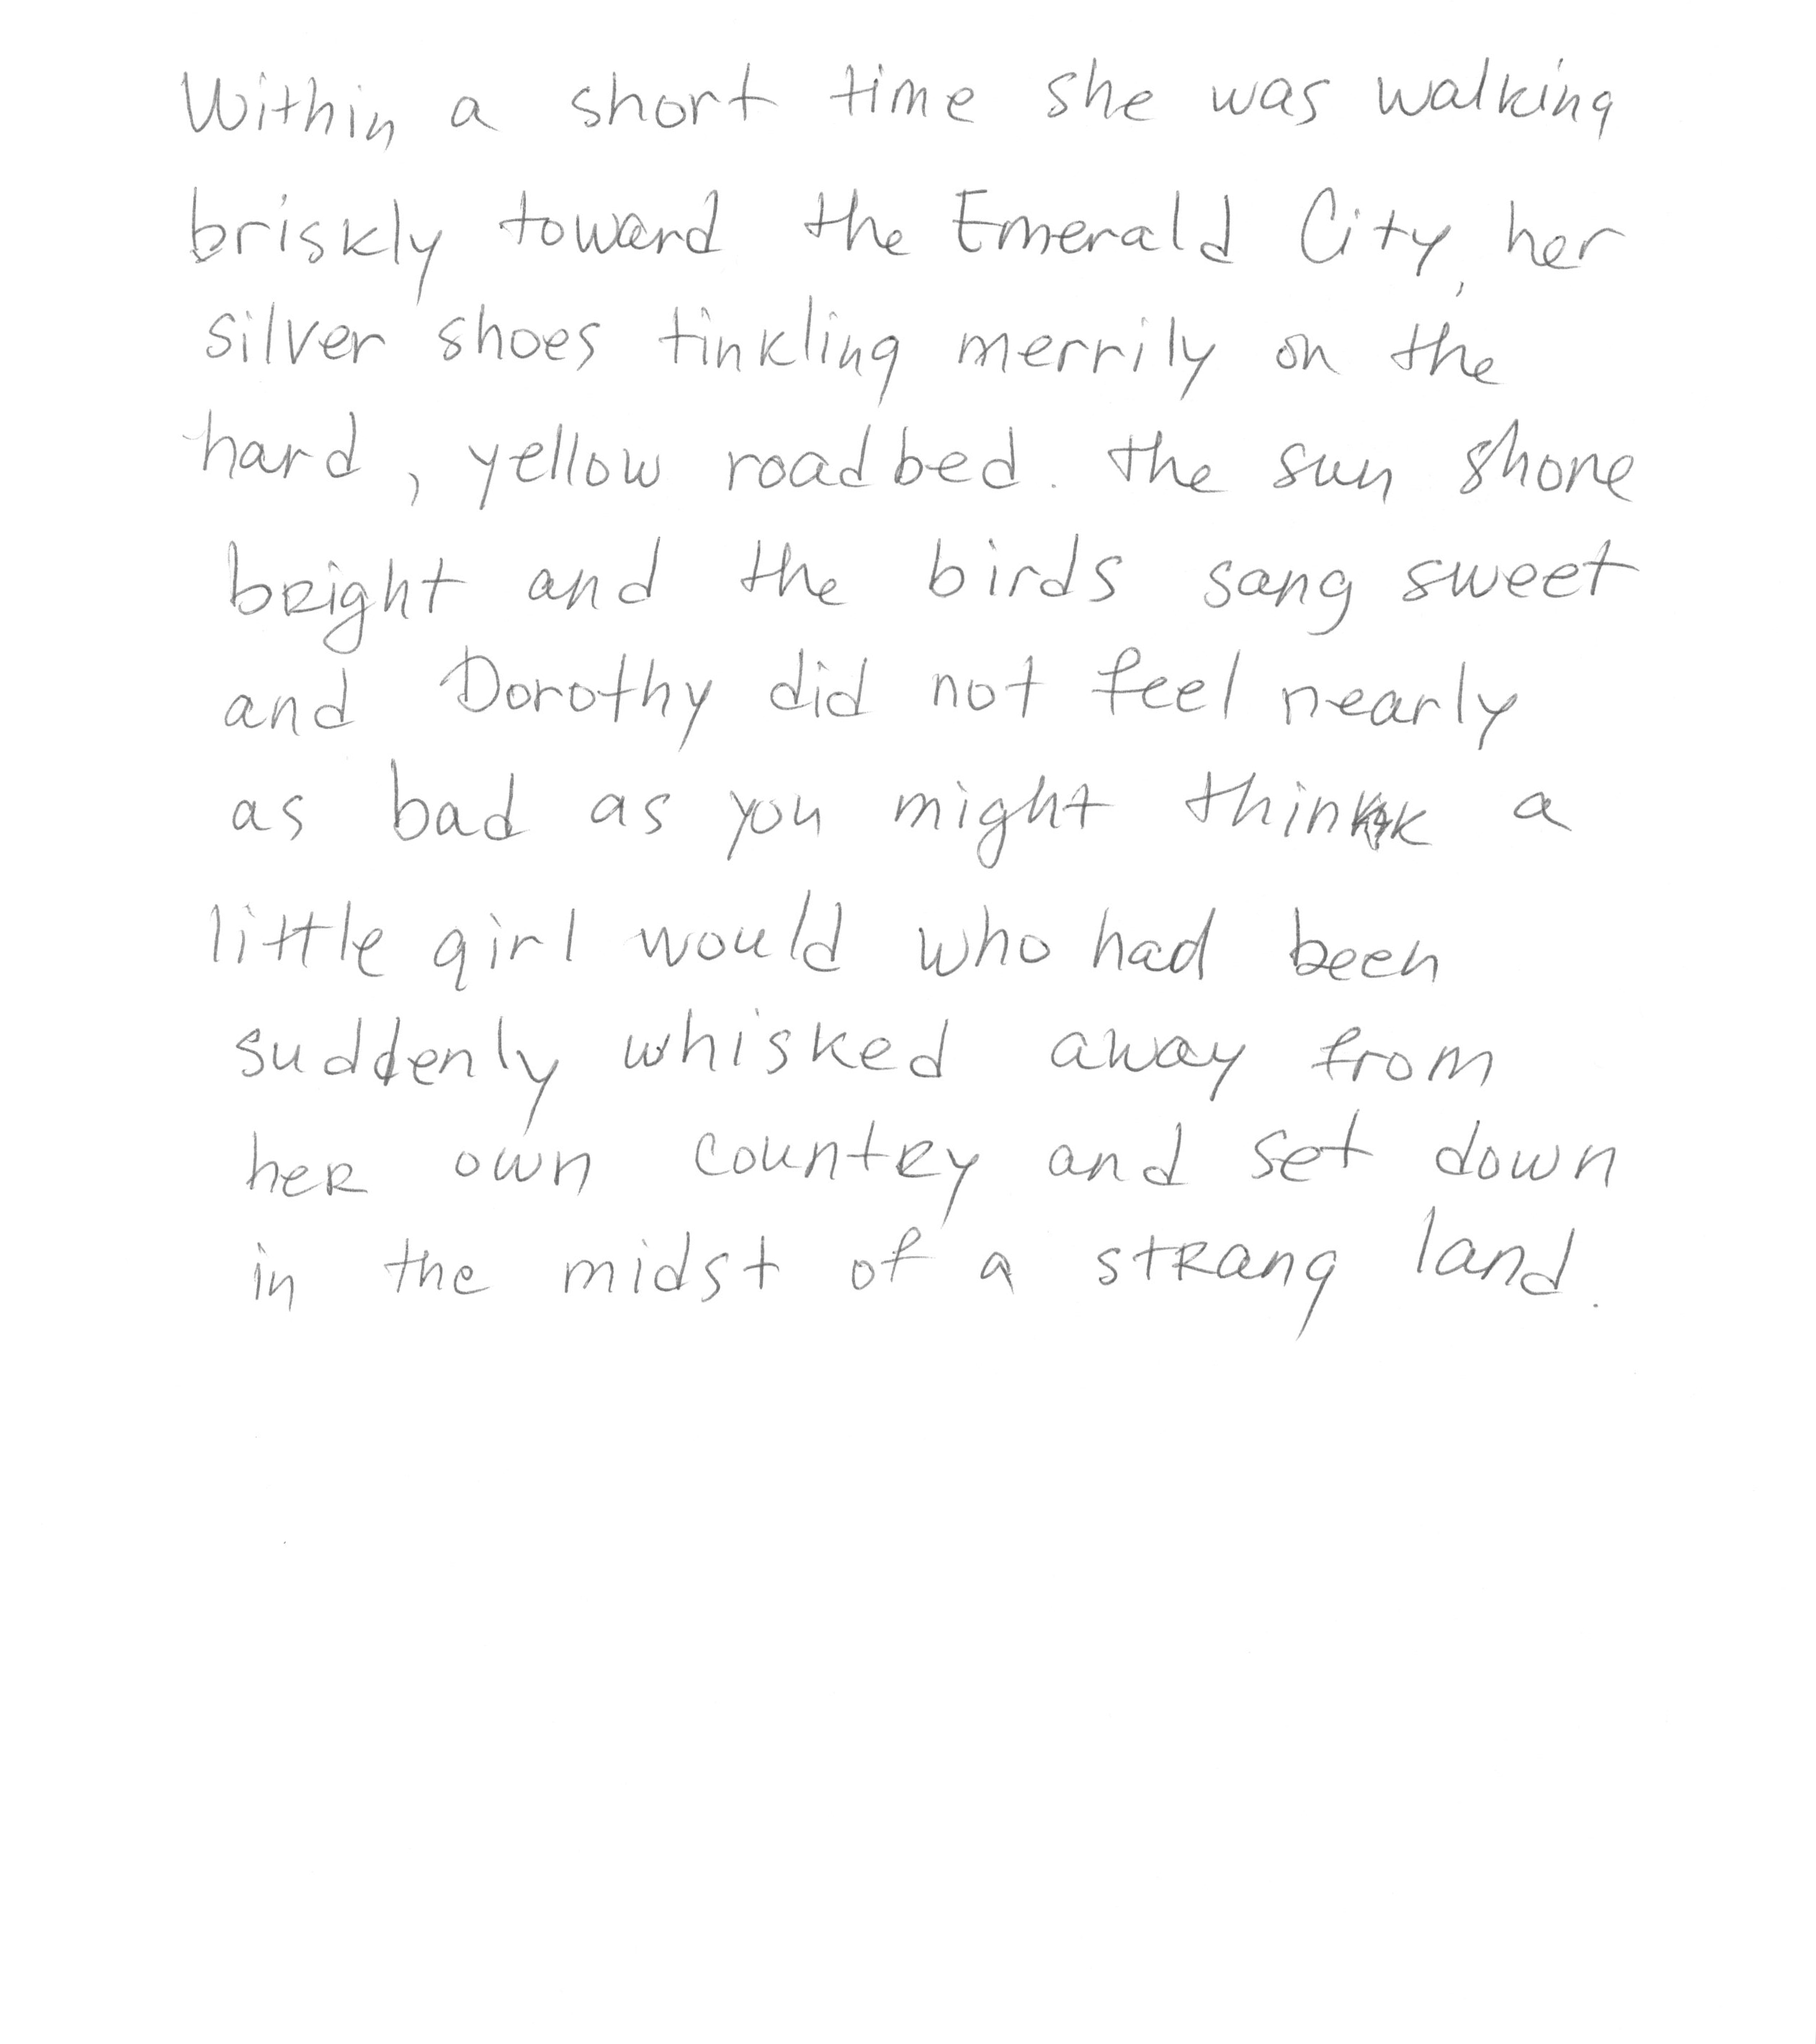 Within a short time she was walking
briskly toward the Emerald City, her
silver shoes tinkling merrily on the
hard, yellow roadbed. the sun shone
bright and the birds sang sweet
and Dorothy did not feel nearly
as bad as you might think a
little girl would who had been
suddenly whisked away from
her own country and set down
in the midst of a strang land.